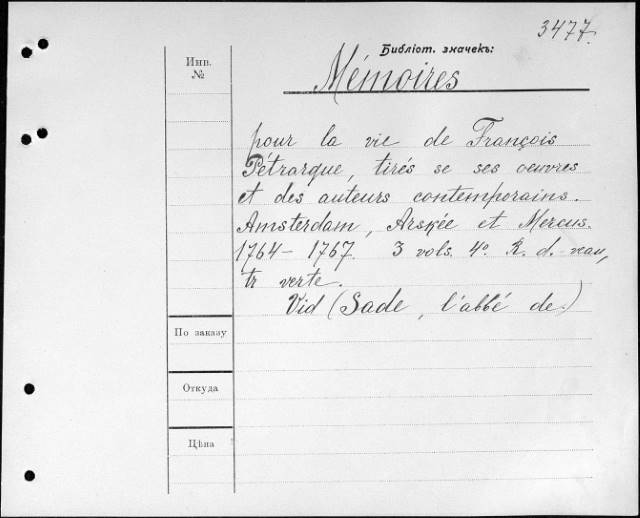 3477.
Библіот. значекъ:
Инв.
№
Mémoires
pour la vie de François
Pétrarque, tirés se ses oeuvres
et des auteurs contemporains.
Amsterdam, Arskée et Mercus.
1764–1767. 3 vols. 4º. R. d. veau,
tr verte.
Vid (Sade, l'abbé de)
По заказу
Откуда
Цѣна